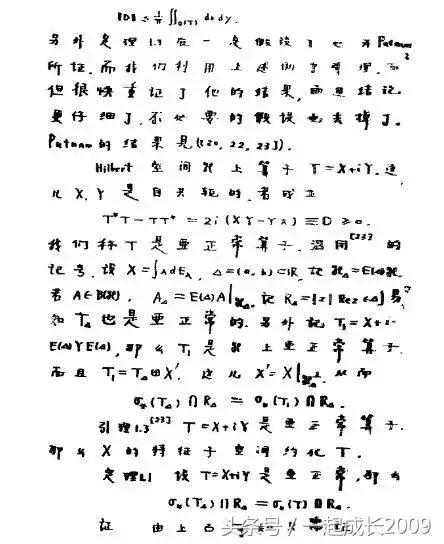 ‖D‖ ≤ 1/π ∬σ(T) dxdy.
另外定理1.3在一定假设下已为Putnam
所证,而我们利用上述的引理,不
但很快重证了他的结果,而且结论
更仔细了,不必要的假设也去掉了。
Putnam的结果是([20, 22, 23]).
Hilbert 空间ℋ上算子 T=X+iY,这
儿 X, Y 是自共轭的,若成立
T*T-TT* = 2i(XY-YX) ≡ D ≥ 0.
我们称T是亚正常算子,沿用[23]的
记号,设 X=∫λdE_λ, Δ=(a,b)⊂ℝ, 记ℋ_Δ=E(Δ)ℋ
若 A∈B(ℋ), A_Δ = E(Δ)A|ℋ_Δ, 记 R_Δ={z|Re z∈Δ} 易
知 T_Δ 也是亚正常的,另外记 T₁=X+i·
E(Δ)YE(Δ), 那么 T₁ 是ℋ上亚正常算子
而且 T₁=T_Δ⊕X', 这儿 X'=X| 从而
(T_Δ)∩R_Δ = (T₁)∩R_Δ.
引理1.3[23] T=X+iY是亚正常算子,
那么X的特征子空间约化T.
定理 设T=X+iY是亚正常,那么
(T_Δ)∩R_Δ = (T)∩R_Δ.
证 由上
头条号/一起成长2009